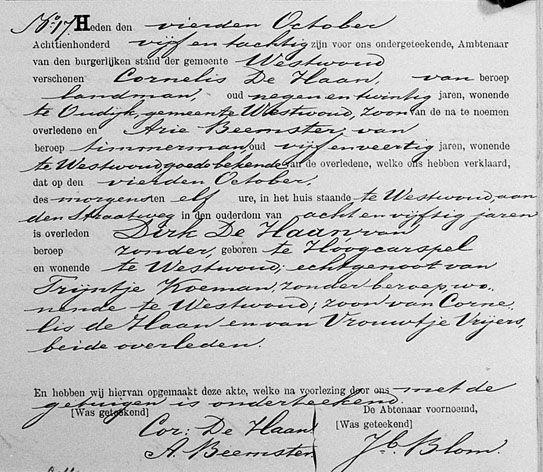 No. 17. Heden den vierden October
Achttienhonderd vijf en tachtig zijn voor ons ondergeteekende, Ambtenaar
van den burgerlijken stand der gemeente Westwoud
verschenen Cornelis De Haan, van beroep
landman, oud negen en twintig jaren, wonende
te Oudijk, gemeente Westwoud, zoon van de na te noemen
overledene en Arie Beemster, van
beroep timmerman, oud vijf en veertig jaren, wonende
te Westwoud, goede bekende van de overledene, welke ons hebben verklaard,
dat op den vierden October,
des morgens ten elf ure, in het huis staande te Westwoud, aan
den Straatweg in den ouderdom van acht en vijftig jaren
is overleden Dirk De Haan van
beroep zonder, geboren te Hoogcarspel
en wonende te Westwoud; echtgenoot van
Trijntje Koeman, zonder beroep, wo-
nende te Westwoud; zoon van Corne-
lis de Haan en van Vrouwtje Vrijers,
beide overleden.
En hebben wij hiervan opgemaakt deze akte, welke na voorlezing door ons met de
getuigen is onderteekend.
[Was geteekend] De Abtenaar voornoemd,
Cor: De Haan [Was geteekend]
A. Beemster Jb. Blom.